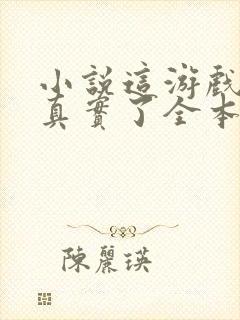 小說這游戲
真實了全本
陳麗瑛